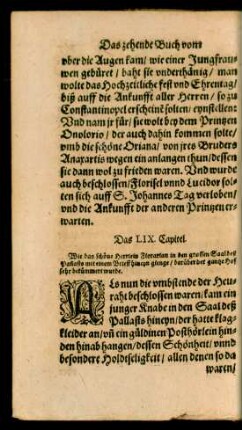 Das zehende Buch vom
vber die Augen kam/ wie einer Jungfrau-
wen gebüret/ baht sie vnderthänig/ man
wolte das Hochzeitliche fest vnd Ehrentag/
biß auff die Ankunfft aller Herren/ so zu
Constantinopel erscheinē solten/ eynstellen:
Vnd nam jr für/ sie wolt bey dem Printzen
Onolorio/ der auch dahin kommen solte/
vmb die schöne Oriana/ von jres Bruders
Anaxartis wegen ein anlangen thun/ dessen
sie dann wol zu frieden waren. Vnd wurde
auch beschlossen/ Florisel vnnd Lucidor sol-
ten sich auff S. Johannes Tag verloben/
vnd die Ankunfft der anderen Printzen er-
warten.
Das LIX. Capitel.
Wie das schöne Herrlein Florarlan in den grossen Saal deß
Pallasts mit einem Brieff hineyn gienge/ darüber der gantze Hof
sehr bekümmert wurde.
ALs nun die vmbstende der Heu-
raht beschlossen waren/ kam ein
junger Knabe in den Saal deß
Pallasts hineyn/ der hatte klag-
kleider an/ vñ ein güldinen Posthörlein hin-
den hinab hangen/ dessen Schönheit/ vnnd
besondere Holdtseligkeit/ allen denen so da
waren/